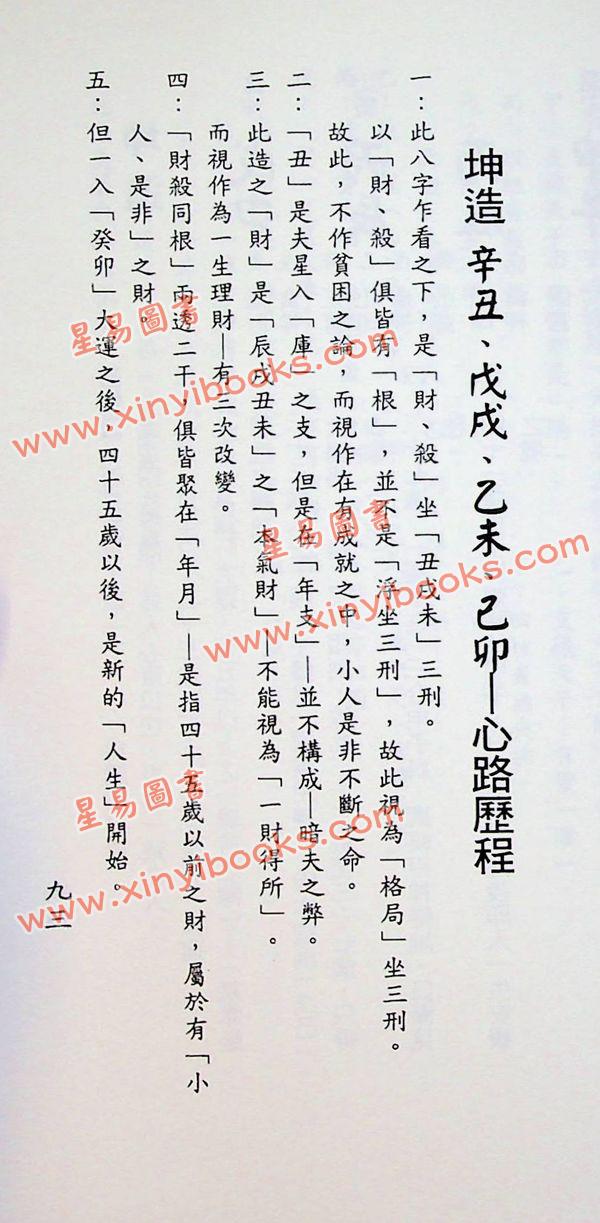 坤造 辛丑、戊戌、乙未、己卯—心路歷程
一：此八字乍看之下，是「財、殺」坐「丑戌未」三刑。
以「財、殺」俱皆有「根」，並不是「浮坐三刑」，故此視為「格局」坐三刑。
故此，不作貧困之論，而視作在有成就之中，小人是非不斷之命。
二：「丑」是夫星入「庫」之支，但是在「年支」—並不構成—暗夫之弊。
三：此造之「財」是「辰戌丑未」之「本氣財」—不能視為「一財得所」。
而視作為一生理財—有三次改變。
四：「財殺同根」兩透二干，俱皆聚在「年月」—是指四十五歲以前之財，屬於有「小
人、是非」之財。
五：但一入「癸卯」大運之後，四十五歲以後，是新的「人生」開始。
九三
星易圖書
www.xinyibooks.com
星易圖書
www.xinyibooks.com
星易圖書
www.xinyibooks.com